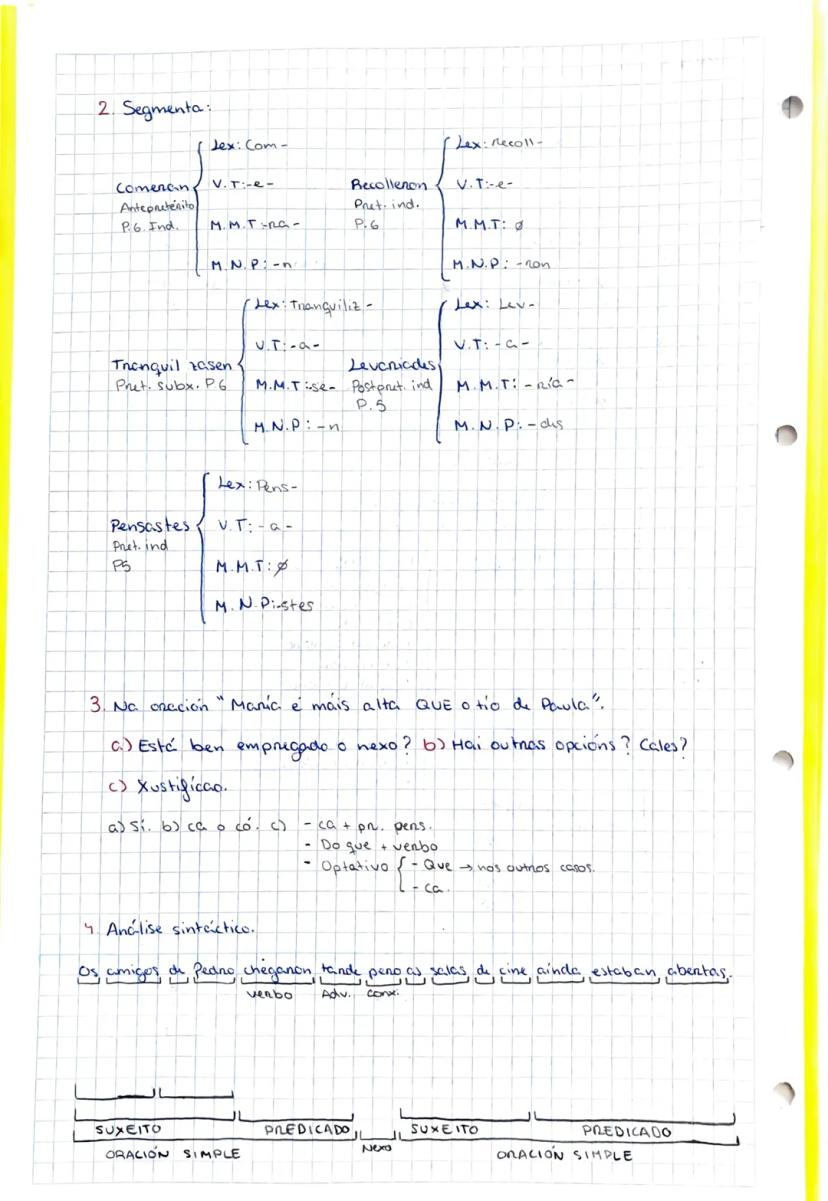 2. Segmenta:
Comeran
Antepretérito
P.6. Ind.
Lex: Com-
V.T:-e-
M.M.T:-ra-
M.N.P:-n
Recolleron
Pret. ind.
P.6
Lex: recoll-
V.T:-e-
M.M.T: ø
M.N.P: -ron
Tranquilizasen
Pret. subx. P.6
Lex: Tranquiliz-
V.T:-a-
M.M.T:-se-
M.N.P: -n
Levariades
Postpret. ind
P.5
Lex: Lev-
V.T: -a-
M.M.T: -ría-
M.N.P: -des
Pensastes
Pret. ind
P5
Lex: Pens-
V.T: -a-
M.M.T: ø
M.N.P:-stes
3. Na oración "María é máis alta QUE o tío de Paula".
a) Está ben empregado o nexo? b) Hai outras opcións? Cales?
c) Xustifícao.
a) Si. b) ca o có. c) - ca + pr. pers.
- Do que + verbo
- Optativo - Que → nos outros casos.
- ca.
4. Análise sintáctico.
Os amigos de Pedro chegaron tarde pero as salas de cine aínda estaban abertas.
verbo Adv. conx.
SUXEITO PREDICADO SUXEITO PREDICADO
ORACIÓN SIMPLE Nexo ORACIÓN SIMPLE